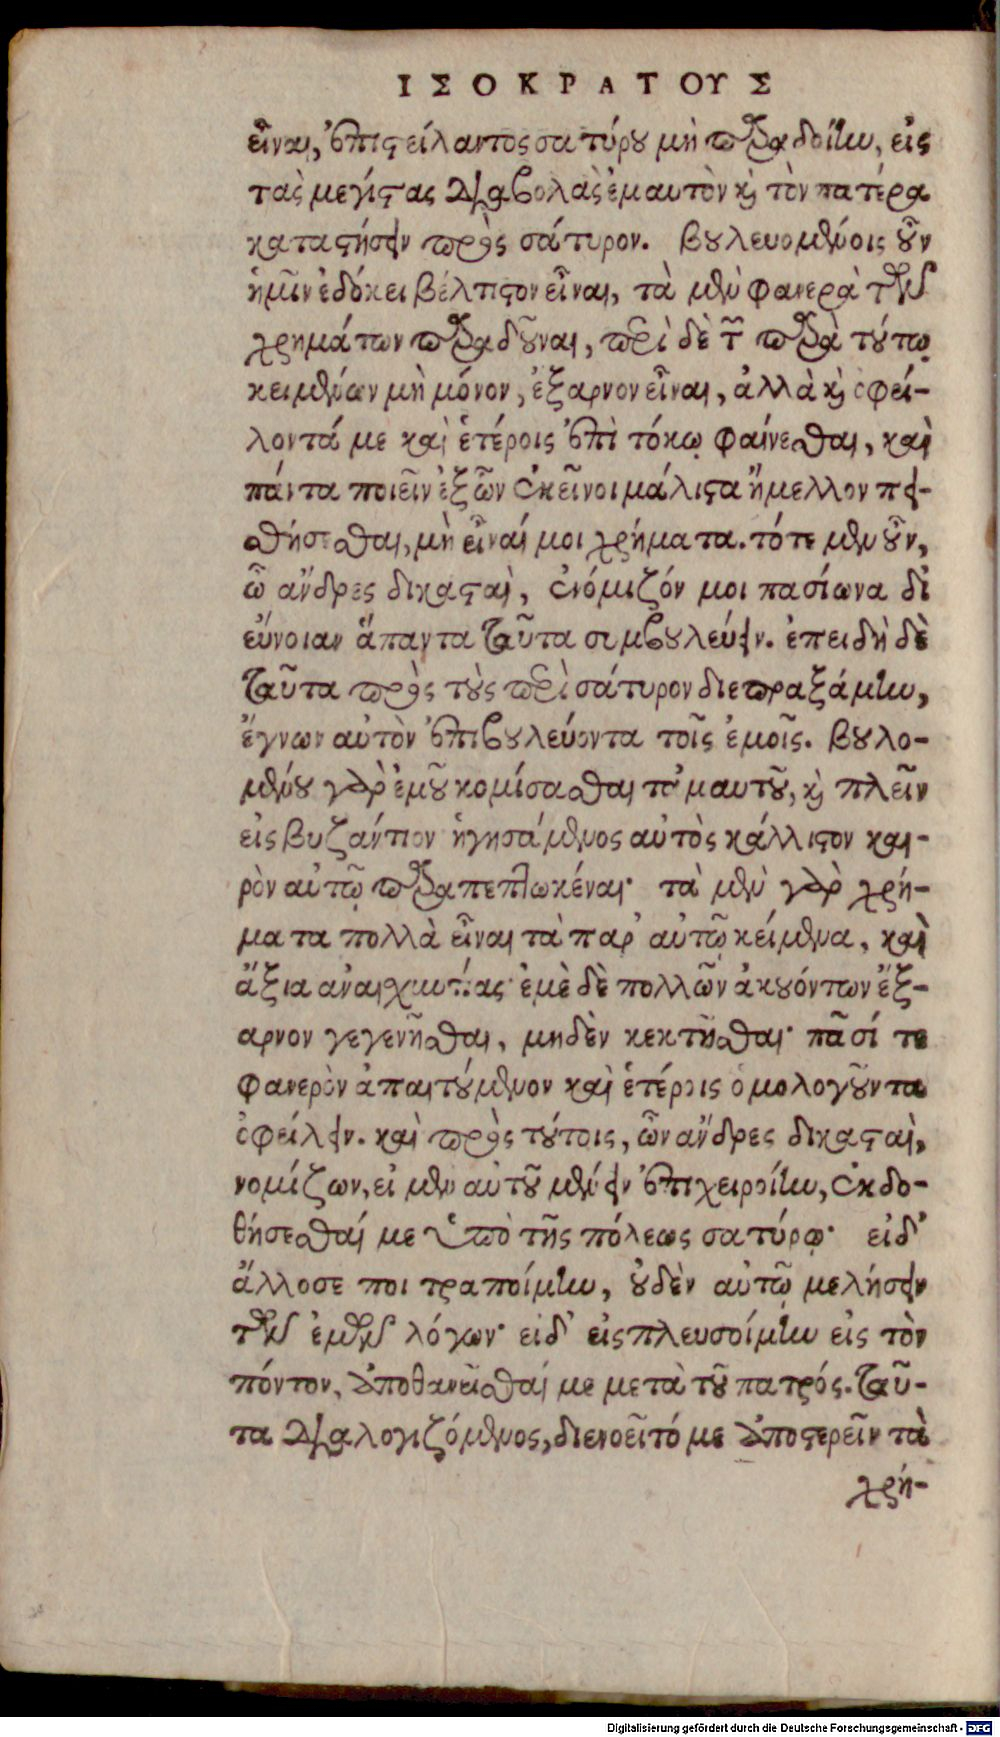 ΙΣΟΚΡΑΤΟΥΣ
εἶναι, ἐπιστείλαντος σατύρου μὴ παραδοίην, εἰς
τὰς μεγίστας διαβολὰς ἐμαυτὸν καὶ τὸν πατέρα
καταστήσειν πρὸς σάτυρον. βουλευομένοις οὖν
ἡμῖν ἐδόκει βέλτιστον εἶναι, τὰ μὲν φανερὰ τῶν
χρημάτων παραδοῦναι, περὶ δὲ τῶν παρὰ τούτῳ
κειμένων μὴ μόνον, ἔξαρνον εἶναι, ἀλλὰ καὶ ὀφεί-
λοντά με καὶ ἑτέροις ἐπὶ τόκῳ φαίνεσθαι, καὶ
πάντα ποιεῖν ἐξ ὧν ἐκεῖνοι μάλιστα ἤμελλον πει-
σθήσεσθαι, μὴ εἶναί μοι χρήματα. τότε μὲν οὖν,
ὦ ἄνδρες δικασταὶ, ἐνόμιζόν μοι πασίωνα δι
εὔνοιαν ἅπαντα ταῦτα συμβουλεύειν. ἐπειδὴ δὲ
ταῦτα πρὸς τοὺς περὶ σάτυρον διεπραξάμην,
ἔγνων αὐτὸν ἐπιβουλεύοντα τοῖς ἐμοῖς. βουλο-
μένου γὰρ ἐμοῦ κομίσασθαι τ' ἀμαυτοῦ, καὶ πλεῖν
εἰς βυζάντιον ἡγησάμενος αὐτὸς κάλλιστον και-
ρὸν αὐτῷ παραπεπτωκέναι· τὰ μὲν γὰρ χρή-
ματα πολλὰ εἶναι τὰ παρ' αὐτῷ κείμενα, καὶ
ἄξια ἀναισχυντίας· ἐμὲ δὲ πολλῶν ἀκουόντων ἔξ-
αρνον γεγενῆσθαι, μηδὲν κεκτῆσθαι· πᾶσί τε
φανερὸν ἀπαιτούμενον καὶ ἑτέροις ὁμολογοῦντα
ὀφείλειν. καὶ πρὸς τούτοις, ὦν ἄνδρες δικασταὶ,
νομίζων, εἰ μὲν αὐτοῦ μένειν ἐπιχειροίην, ἐκδο-
θήσεσθαί με ὑπὸ τῆς πόλεως σατύρῳ· εἰ δ'
ἄλλοσε ποι τραποίμην, οὐδὲν αὐτῷ μελήσειν
τῶν ἐμῶν λόγων· εἰ δ' εἰσπλευσοίμην εἰς τὸν
πόντον, ἀποθανεῖσθαί με μετὰ τοῦ πατρός. ταῦ-
τα διαλογιζόμενος, διενοεῖτό με ἀποστερεῖν τὰ
χρή-
Digitalisierung gefördert durch die Deutsche Forschungsgemeinschaft - DFG